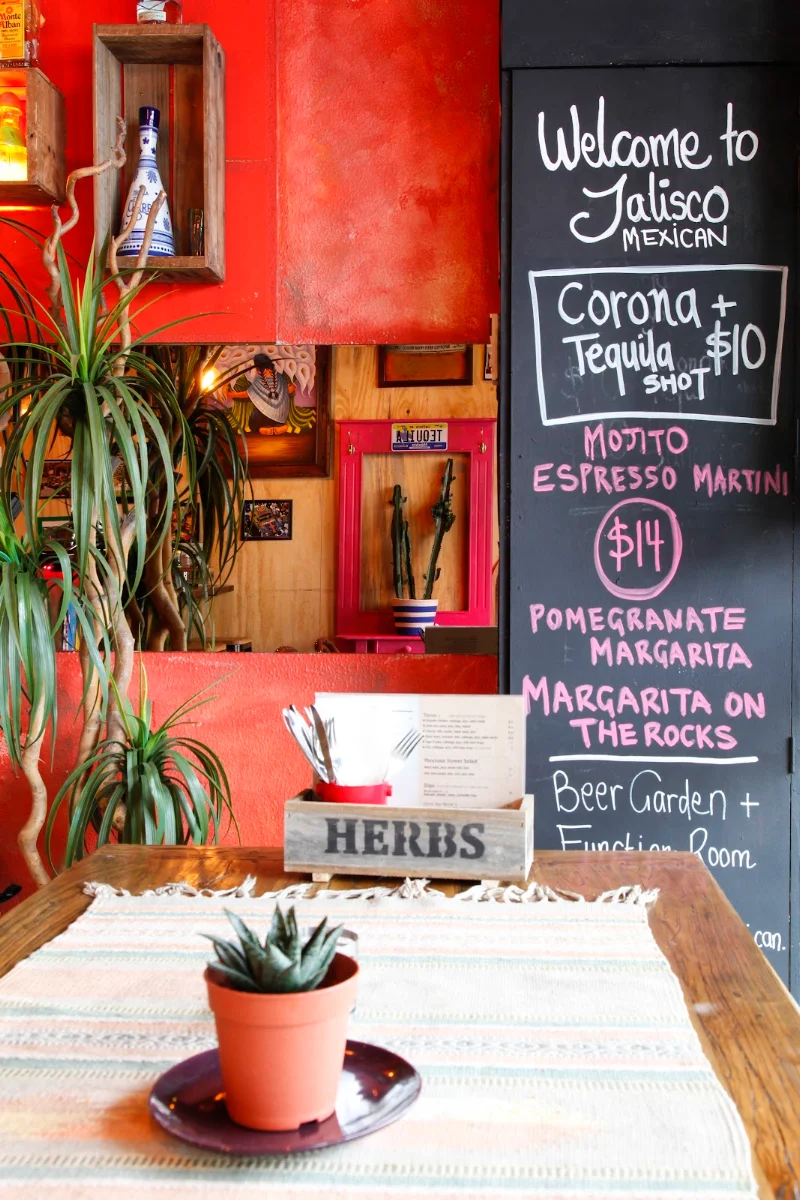 Monte
Alban
Welcome to
Jalisco
MEXICAN
Corona +
Tequila $10
SHOT
MOJITO
ESPRESSO MARTINI
$14
POMEGRANATE
MARGARITA
MARGARITA ON
THE ROCKS
Beer Garden +
Function Room
can.
TEQUILA
HERBS